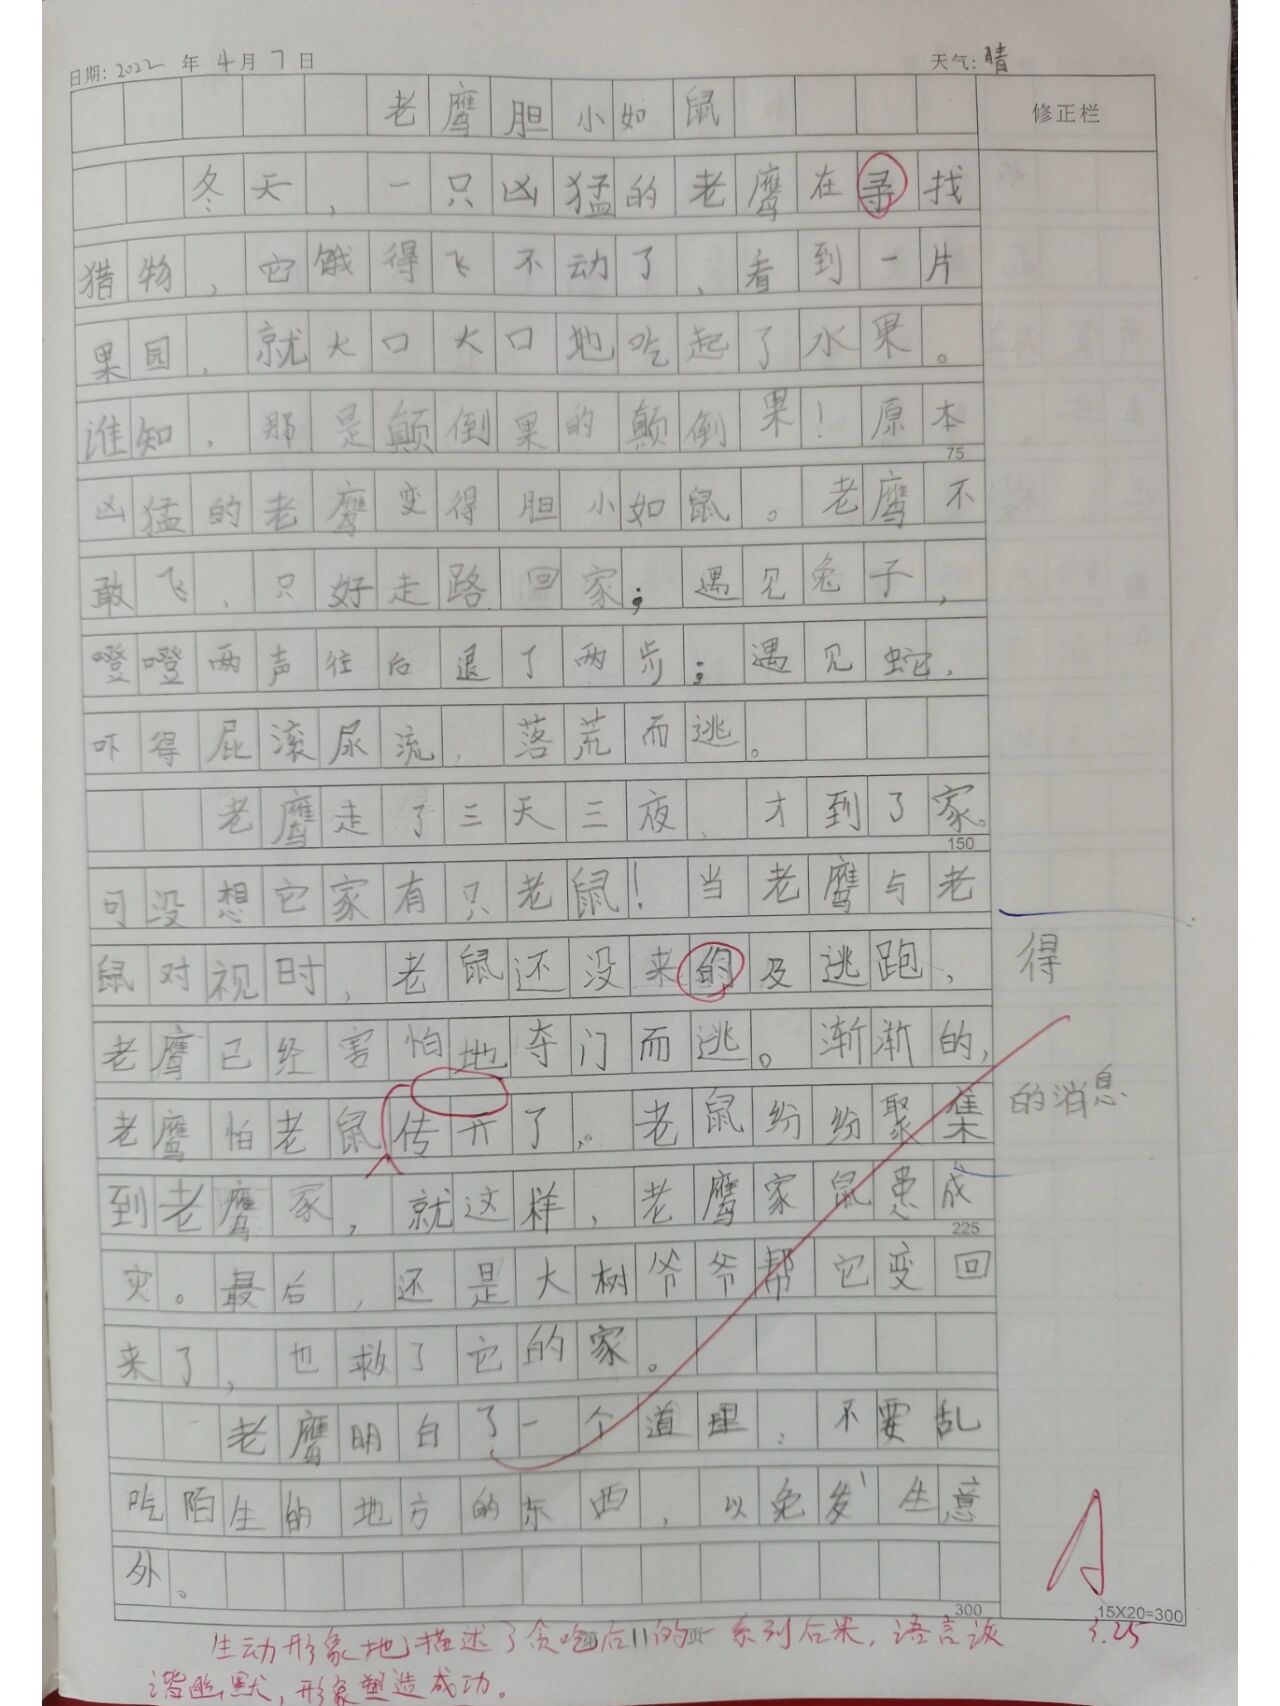 日期：2022年4月7日 天气：晴
老鹰胆小如鼠 修正栏
冬天，一只凶猛的老鹰在寻找
猎物，它饿得飞不动了，看到一片
果园，就大口大口地吃起了水果。
谁知，那是颠倒果的颠倒果！原本
75
凶猛的老鹰变得胆小如鼠。老鹰不
敢飞，只好走路回家；遇见兔子，
噔噔两声往后退了两步；遇见蛇，
吓得屁滚尿流，落荒而逃。
老鹰走了三天三夜，才到了家。
150
可没想它家有只老鼠！当老鹰与老
鼠对视时，老鼠还没来的及逃跑， 得
老鹰已经害怕地夺门而逃。渐渐的，
老鹰怕老鼠传开了。老鼠纷纷聚集 的消息
到老鹰家，就这样，老鹰家鼠患成
225
灾。最后，还是大树爷爷帮它变回
来了，也救了它的家。
老鹰明白了一个道理：不要乱
吃陌生的地方的东西，以免发生意
外。
A
300 15X20=300
生动形象地描述了贪吃后的一系列后果，语言诙
谐幽默，形象塑造成功。